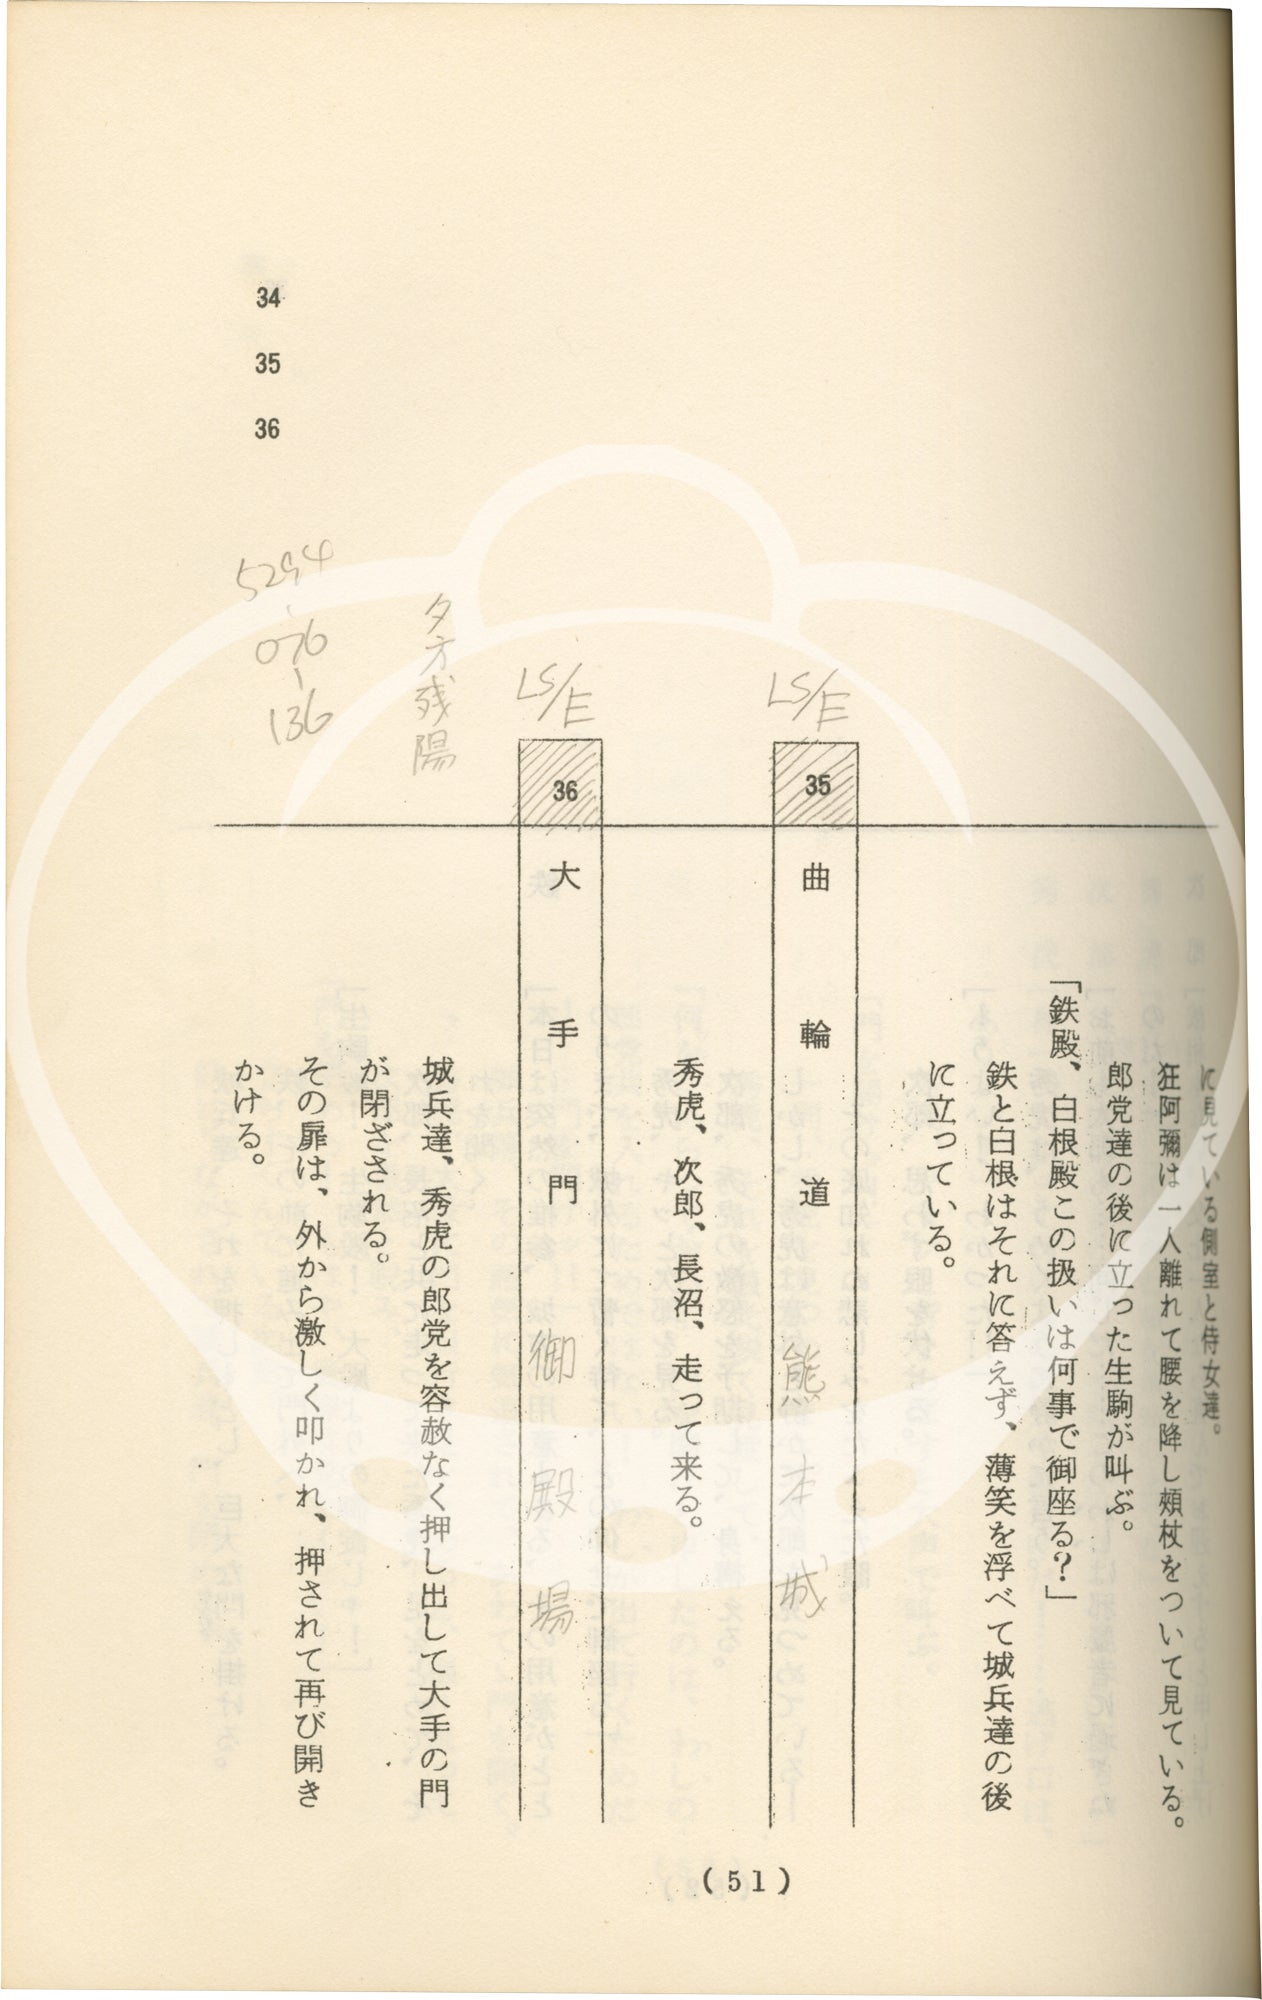 に見ている側室と侍女達。
狂阿彌は一人離れて腰を降し頬杖をついて見ている。
郎党達の後に立った生駒が叫ぶ。
「鉄殿、白根殿この扱いは何事で御座る?」
鉄と白根はそれに答えず、薄笑を浮べて城兵達の後
に立っている。
LS/E
35 曲輪道 熊本城
秀虎、次郎、長沼、走って来る。
LS/E
36 大手門 御殿場
夕方残陽
城兵達、秀虎の郎党を容赦なく押し出して大手の門
が閉ざされる。
その扉は、外から激しく叩かれ、押されて再び開き
かける。
34
35
36
5294
076
136
(51)